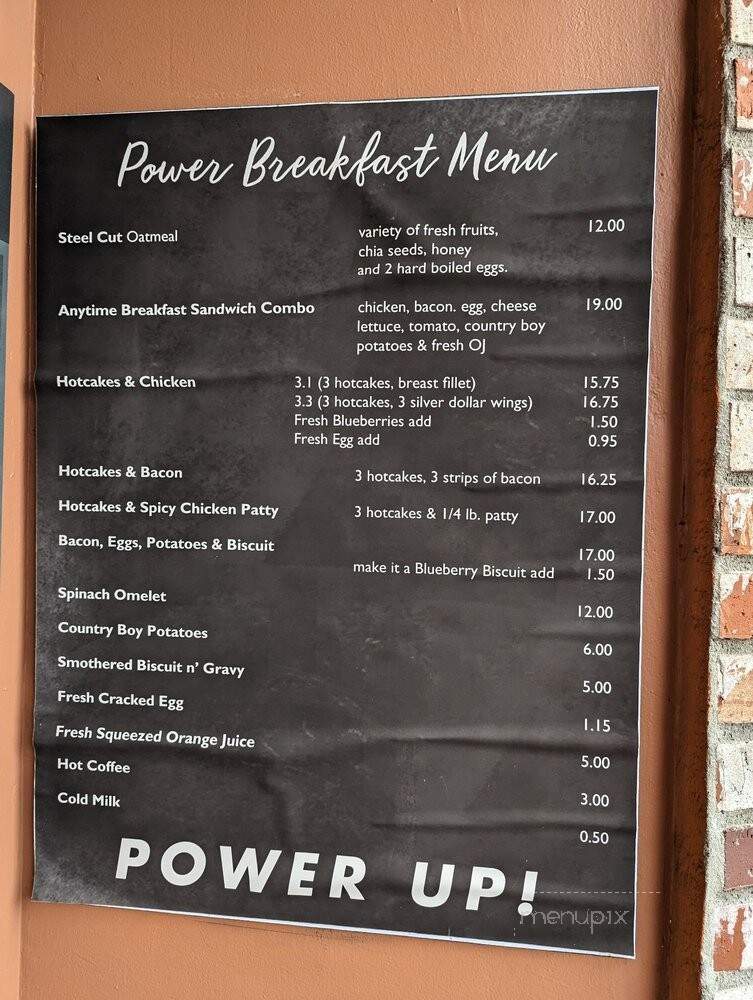 Power Breakfast Menu
Steel Cut Oatmeal variety of fresh fruits, 12.00
chia seeds, honey
and 2 hard boiled eggs.
Anytime Breakfast Sandwich Combo chicken, bacon. egg, cheese 19.00
lettuce, tomato, country boy
potatoes & fresh OJ
Hotcakes & Chicken 3.1 (3 hotcakes, breast fillet) 15.75
3.3 (3 hotcakes, 3 silver dollar wings) 16.75
Fresh Blueberries add 1.50
Fresh Egg add 0.95
Hotcakes & Bacon 3 hotcakes, 3 strips of bacon 16.25
Hotcakes & Spicy Chicken Patty 3 hotcakes & 1/4 lb. patty 17.00
Bacon, Eggs, Potatoes & Biscuit 17.00
make it a Blueberry Biscuit add 1.50
Spinach Omelet 12.00
Country Boy Potatoes 6.00
Smothered Biscuit n' Gravy 5.00
Fresh Cracked Egg 1.15
Fresh Squeezed Orange Juice 5.00
Hot Coffee 3.00
Cold Milk 0.50
POWER UP!
menupix